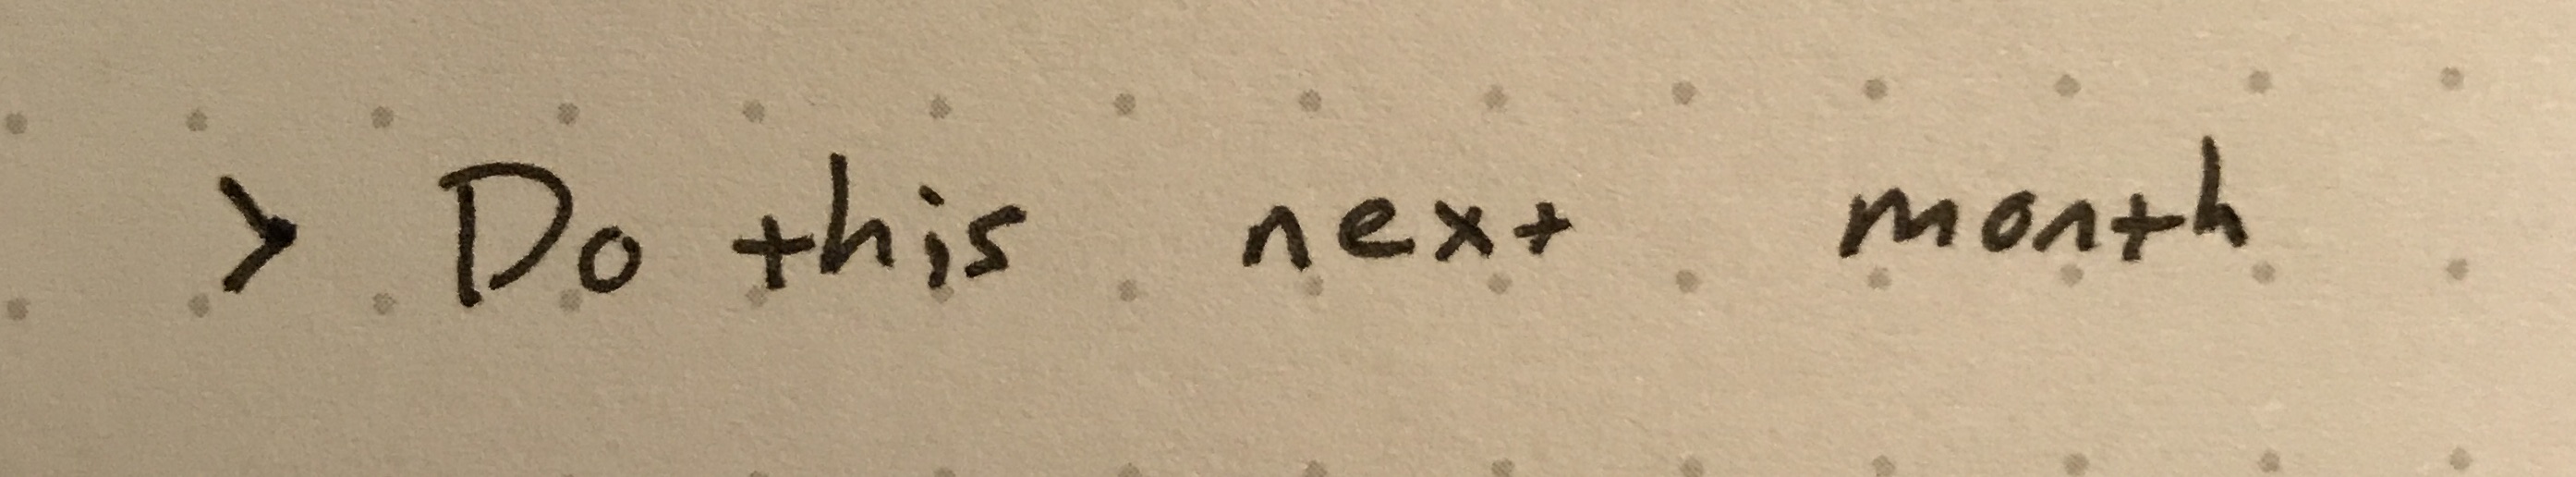 > Do this next month